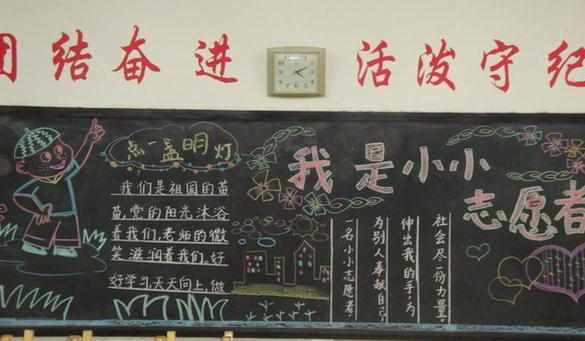 团结奋进 活泼守纪
点一盏明灯
我们是祖国的苗
苗,党的阳光沐浴
着我们,老师的微
笑滋润着我们,好
好学习,天天向上,做
我是小小
志愿者
社会尽一份力量,
伸出我的手,为
为别人奉献自己,
一名小小志愿者,